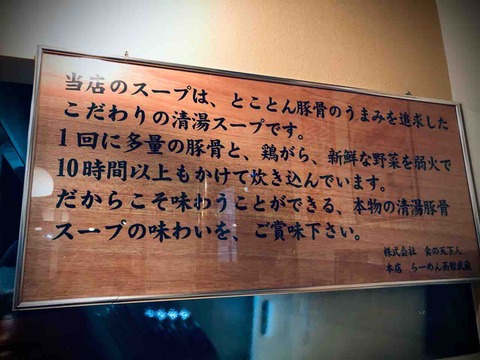 当店のスープは、とことん豚骨のうまみを追求した
こだわりの清湯スープです。
1回に多量の豚骨と、鶏がら、新鮮な野菜を弱火で
10時間以上もかけて炊き込んでいます。
だからこそ味わうことができる、本物の清湯豚骨
スープの味わいを、ご賞味下さい。
株式会社 食の天下人
本店 らーめん